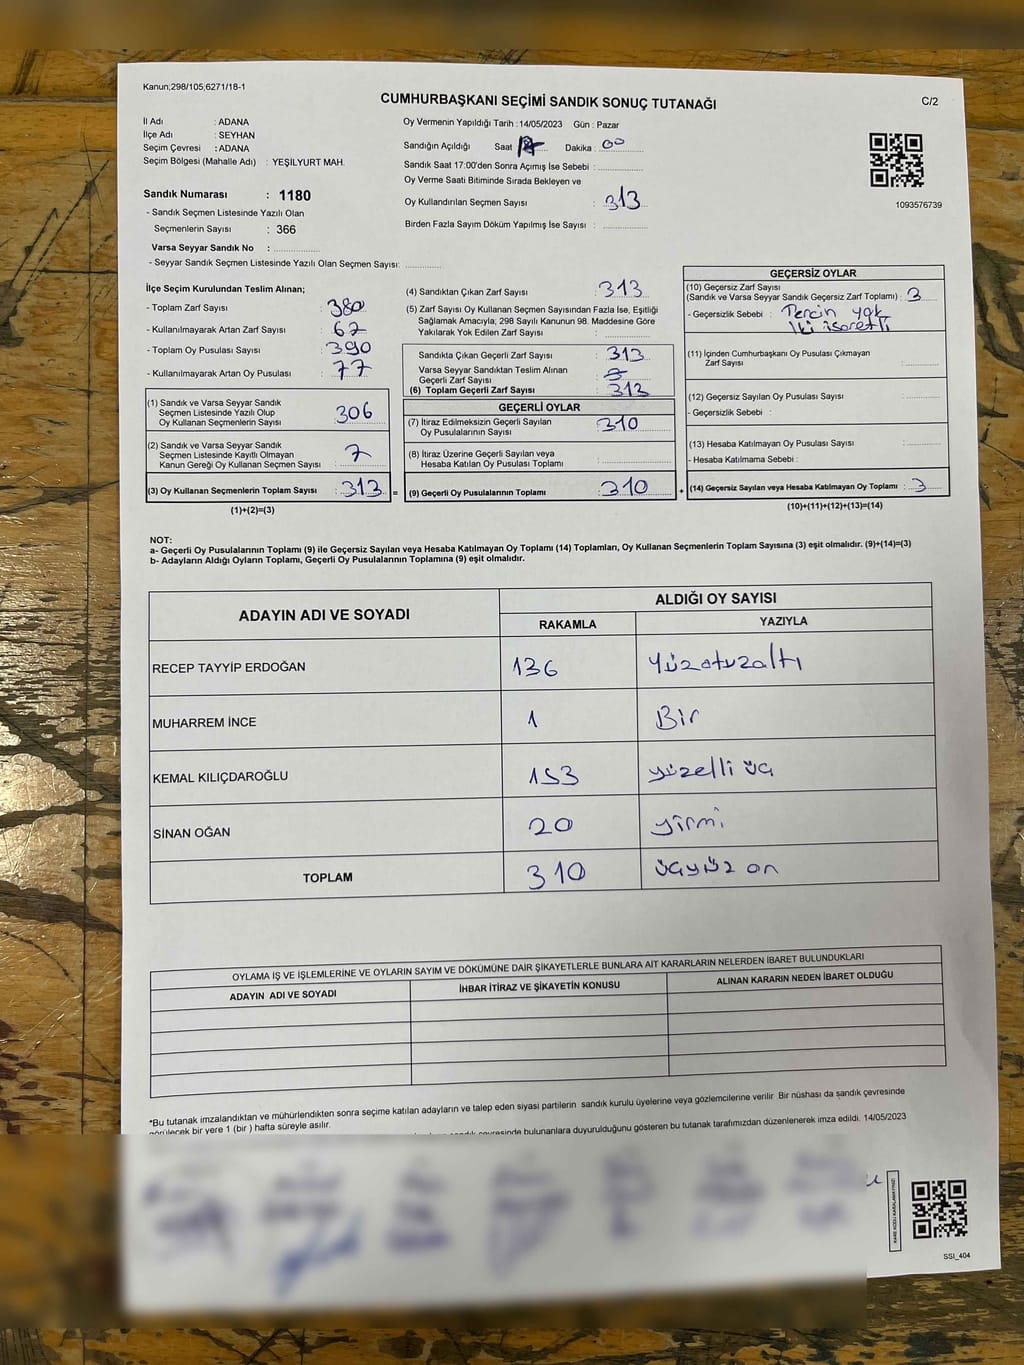 Kanun;298/105;6271/18-1
CUMHURBAŞKANI SEÇİMİ SANDIK SONUÇ TUTANAĞI
C/2
İl Adı : ADANA
İlçe Adı : SEYHAN
Seçim Çevresi : ADANA
Seçim Bölgesi (Mahalle Adı) : YEŞİLYURT MAH.
Sandık Numarası : 1180
- Sandık Seçmen Listesinde Yazılı Olan
Seçmenlerin Sayısı : 366
Varsa Seyyar Sandık No :
- Seyyar Sandık Seçmen Listesinde Yazılı Olan Seçmen Sayısı:
Oy Vermenin Yapıldığı Tarih : 14/05/2023 Gün : Pazar
Sandığın Açıldığı Saat Dakika : 00
Sandık Saat 17:00'den Sonra Açımış İse Sebebi :
Oy Verme Saati Bitiminde Sırada Bekleyen ve
Oy Kullandırılan Seçmen Sayısı : 313
Birden Fazla Sayım Döküm Yapılmış İse Sayısı :
1093576739
İlçe Seçim Kurulundan Teslim Alınan;
- Toplam Zarf Sayısı : 380
- Kullanılmayarak Artan Zarf Sayısı : 67
- Toplam Oy Pusulası Sayısı : 390
- Kullanılmayarak Artan Oy Pusulası : 77
(1) Sandık ve Varsa Seyyar Sandık
Seçmen Listesinde Yazılı Olup
Oy Kullanan Seçmenlerin Sayısı : 306
(2) Sandık ve Varsa Seyyar Sandık
Seçmen Listesinde Kayıtlı Olmayan
Kanun Gereği Oy Kullanan Seçmen Sayısı : 7
(3) Oy Kullanan Seçmenlerin Toplam Sayısı : 313 =
(1)+(2)=(3)
(4) Sandıktan Çıkan Zarf Sayısı : 313
(5) Zarf Sayısı Oy Kullanan Seçmen Sayısından Fazla İse, Eşitliği
Sağlamak Amacıyla, 298 Sayılı Kanunun 98. Maddesine Göre
Yakılarak Yok Edilen Zarf Sayısı :
Sandıkta Çıkan Geçerli Zarf Sayısı : 313
Varsa Seyyar Sandıktan Teslim Alınan
Geçerli Zarf Sayısı :
(6) Toplam Geçerli Zarf Sayısı : 313
GEÇERLİ OYLAR
(7) İtiraz Edilmeksizin Geçerli Sayılan
Oy Pusulalarının Sayısı : 310
(8) İtiraz Üzerine Geçerli Sayılan veya
Hesaba Katılan Oy Pusulası Toplamı :
(9) Geçerli Oy Pusulalarının Toplamı : 310 +
GEÇERSİZ OYLAR
(10) Geçersiz Zarf Sayısı
(Sandık ve Varsa Seyyar Sandık Geçersiz Zarf Toplamı) : 3
- Geçersizlik Sebebi : Tercin yok
İki işaretli
(11) İçinden Cumhurbaşkanı Oy Pusulası Çıkmayan
Zarf Sayısı :
(12) Geçersiz Sayılan Oy Pusulası Sayısı :
- Geçersizlik Sebebi :
(13) Hesaba Katılmayan Oy Pusulası Sayısı :
- Hesaba Katılmama Sebebi :
(14) Geçersiz Sayılan veya Hesaba Katılmayan Oy Toplamı : 3
(10)+(11)+(12)+(13)=(14)
NOT:
a- Geçerli Oy Pusulalarının Toplamı (9) ile Geçersiz Sayılan veya Hesaba Katılmayan Oy Toplamı (14) Toplamları, Oy Kullanan Seçmenlerin Toplam Sayısına (3) eşit olmalıdır. (9)+(14)=(3)
b- Adayların Aldığı Oyların Toplamı, Geçerli Oy Pusulalarının Toplamına (9) eşit olmalıdır.
ADAYIN ADI VE SOYADI
ALDIĞI OY SAYISI
RAKAMLA YAZIYLA
RECEP TAYYİP ERDOĞAN 136 Yüzotuzaltı
MUHARREM İNCE 1 Bir
KEMAL KILIÇDAROĞLU 153 yüzelli üç
SİNAN OĞAN 20 yirmi
TOPLAM 310 üçyüz on
OYLAMA İŞ VE İŞLEMLERİNE VE OYLARIN SAYIM VE DÖKÜMÜNE DAİR ŞİKAYETLERLE BUNLARA AİT KARARLARIN NELERDEN İBARET BULUNDUKLARI
ADAYIN ADI VE SOYADI İHBAR İTİRAZ VE ŞİKAYETİN KONUSU ALINAN KARARIN NEDEN İBARET OLDUĞU
*Bu tutanak imzalandıktan ve mühürlendikten sonra seçime katılan adayların ve talep eden siyasi partilerin sandık kurulu üyelerine veya gözlemcilerine verilir Bir nüshası da sandık çevresinde
görülecek bir yere 1 (bir ) hafta süreyle asılır.
bulunanlara duyurulduğunu gösteren bu tutanak tarafımızdan düzenlenerek imza edildi. 14/05/2023
KARE KODU KARALAMAYINIZ!
SSI_404